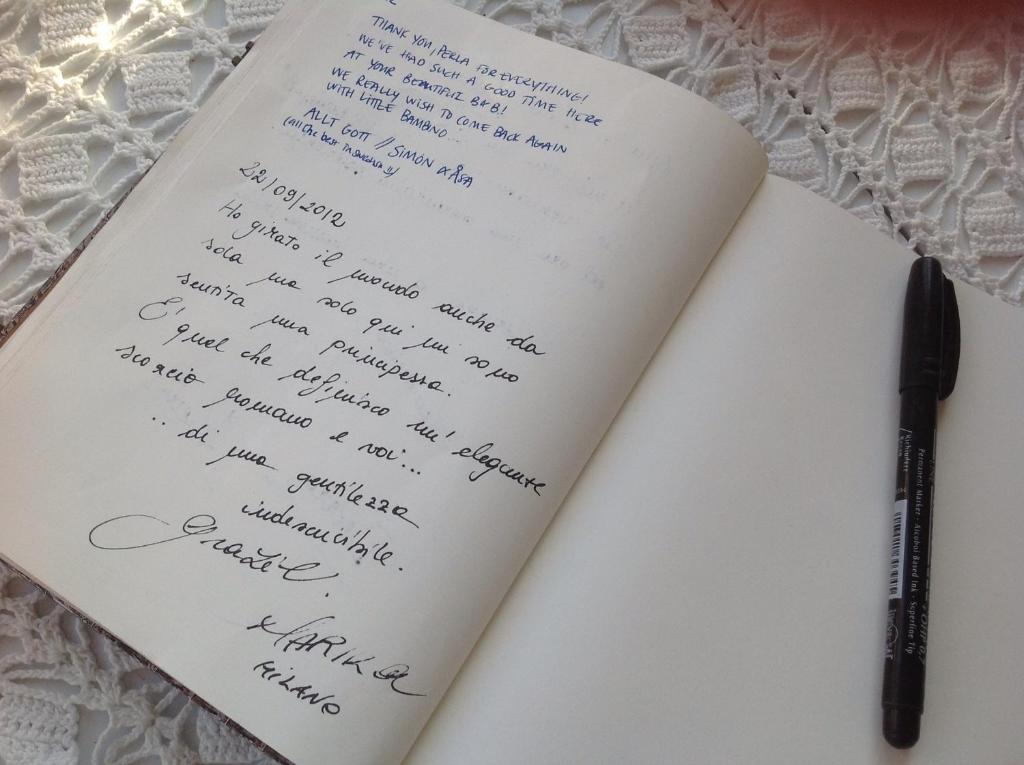 THANK YOU, PERLA FOR EVERYTHING!
WE'VE HAD SUCH A GOOD TIME HERE
AT YOUR BEAUTIFUL B&B!
WE REALLY WISH TO COME BACK AGAIN
WITH LITTLE BAMBINO...
ALLT GOTT // SIMÓN & ÅSA
(all the best in swedish !!)
22/09/2012
Ho girato il mondo anche da
sola ma solo qui mi sono
sentita una principessa.
E' quel che definisco un' elegante
scorcio romano e voi...
.. di una gentilezza
indescrivibile.
Grazie!
MARIKA
MILANO
Permanent Marker · Alcohol Based Ink · Superfine Tip